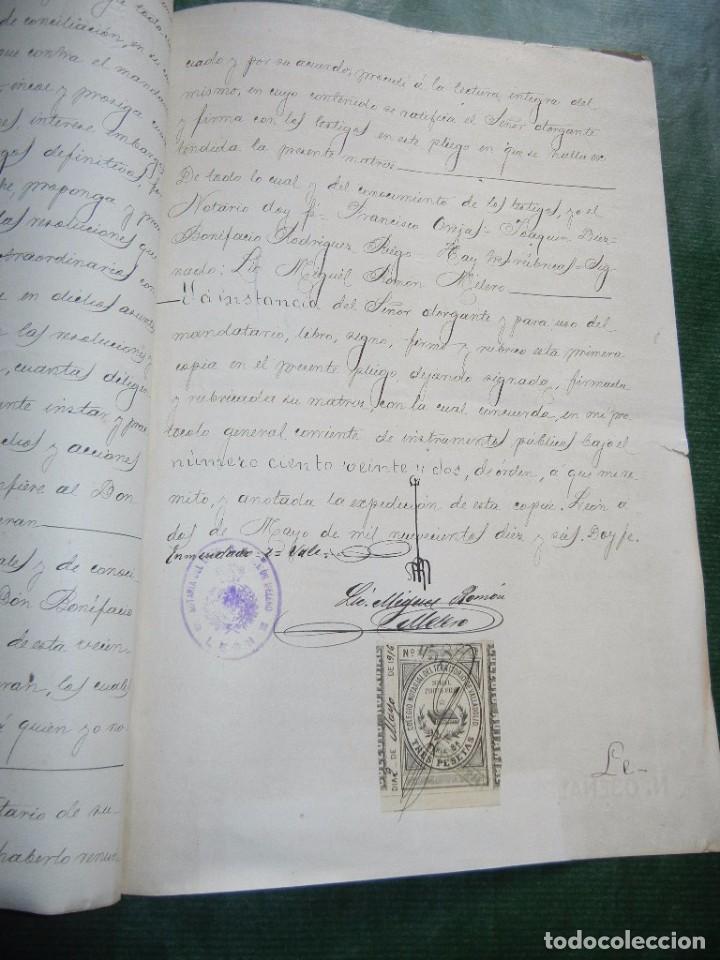 de conciliación, en su
que contra el mandan
incoe y prosiga
interese, embargos
definitivos,
proponga y
las resoluciones que
traordinarios con
en dichos asuntos
las resoluciones y
cuantas diligen
ante instar y
y acciones
efiere al Don
eran
ales y de consci
Don Bonifacio
de esta vecin
eran, los cuales
á quien yo no
tario de su
haberlo renun
cuado y por su acuerdo, procedí á la lectura íntegra del
mismo, en cuyo contenido se ratifica el Señor otorgante
y firma con los testigos en este pliego en que se halla ex
tendida la presente matriz
De todo lo cual y del conocimiento de los testigos, yo el
Notario doy fé = Francisco = Joaquín Diez=
Bonifacio Rodríguez = Hay tres rúbricas = Sig
nado: Lic Miguél Román Melero
Y á instancia del Señor otorgante y para uso del
mandatario, libro, signo, firmo y rubrico esta primera
copia en el presente pliego, dejando signada, firmada
y rubricada su matriz, con la cual concuerda, en mi pro
tocolo general corriente de instrumentos públicos bajo el
número ciento veinte y dos, de orden, a que me re
mito, y anotada la expedición de esta copia. León a
dos de Mayo de mil novecientos diez y seis. Doy fe.
Enmendado = = Vale =
Lic. Miguel Román
Melero
NOTARIA DEL
LEON
Nº
COLEGIO NOTARIAL DEL TERRITORIO DE VALLADOLID
TRES PESETAS
DIA 2 DE Mayo DE 1916
Le-
todocoleccion.net